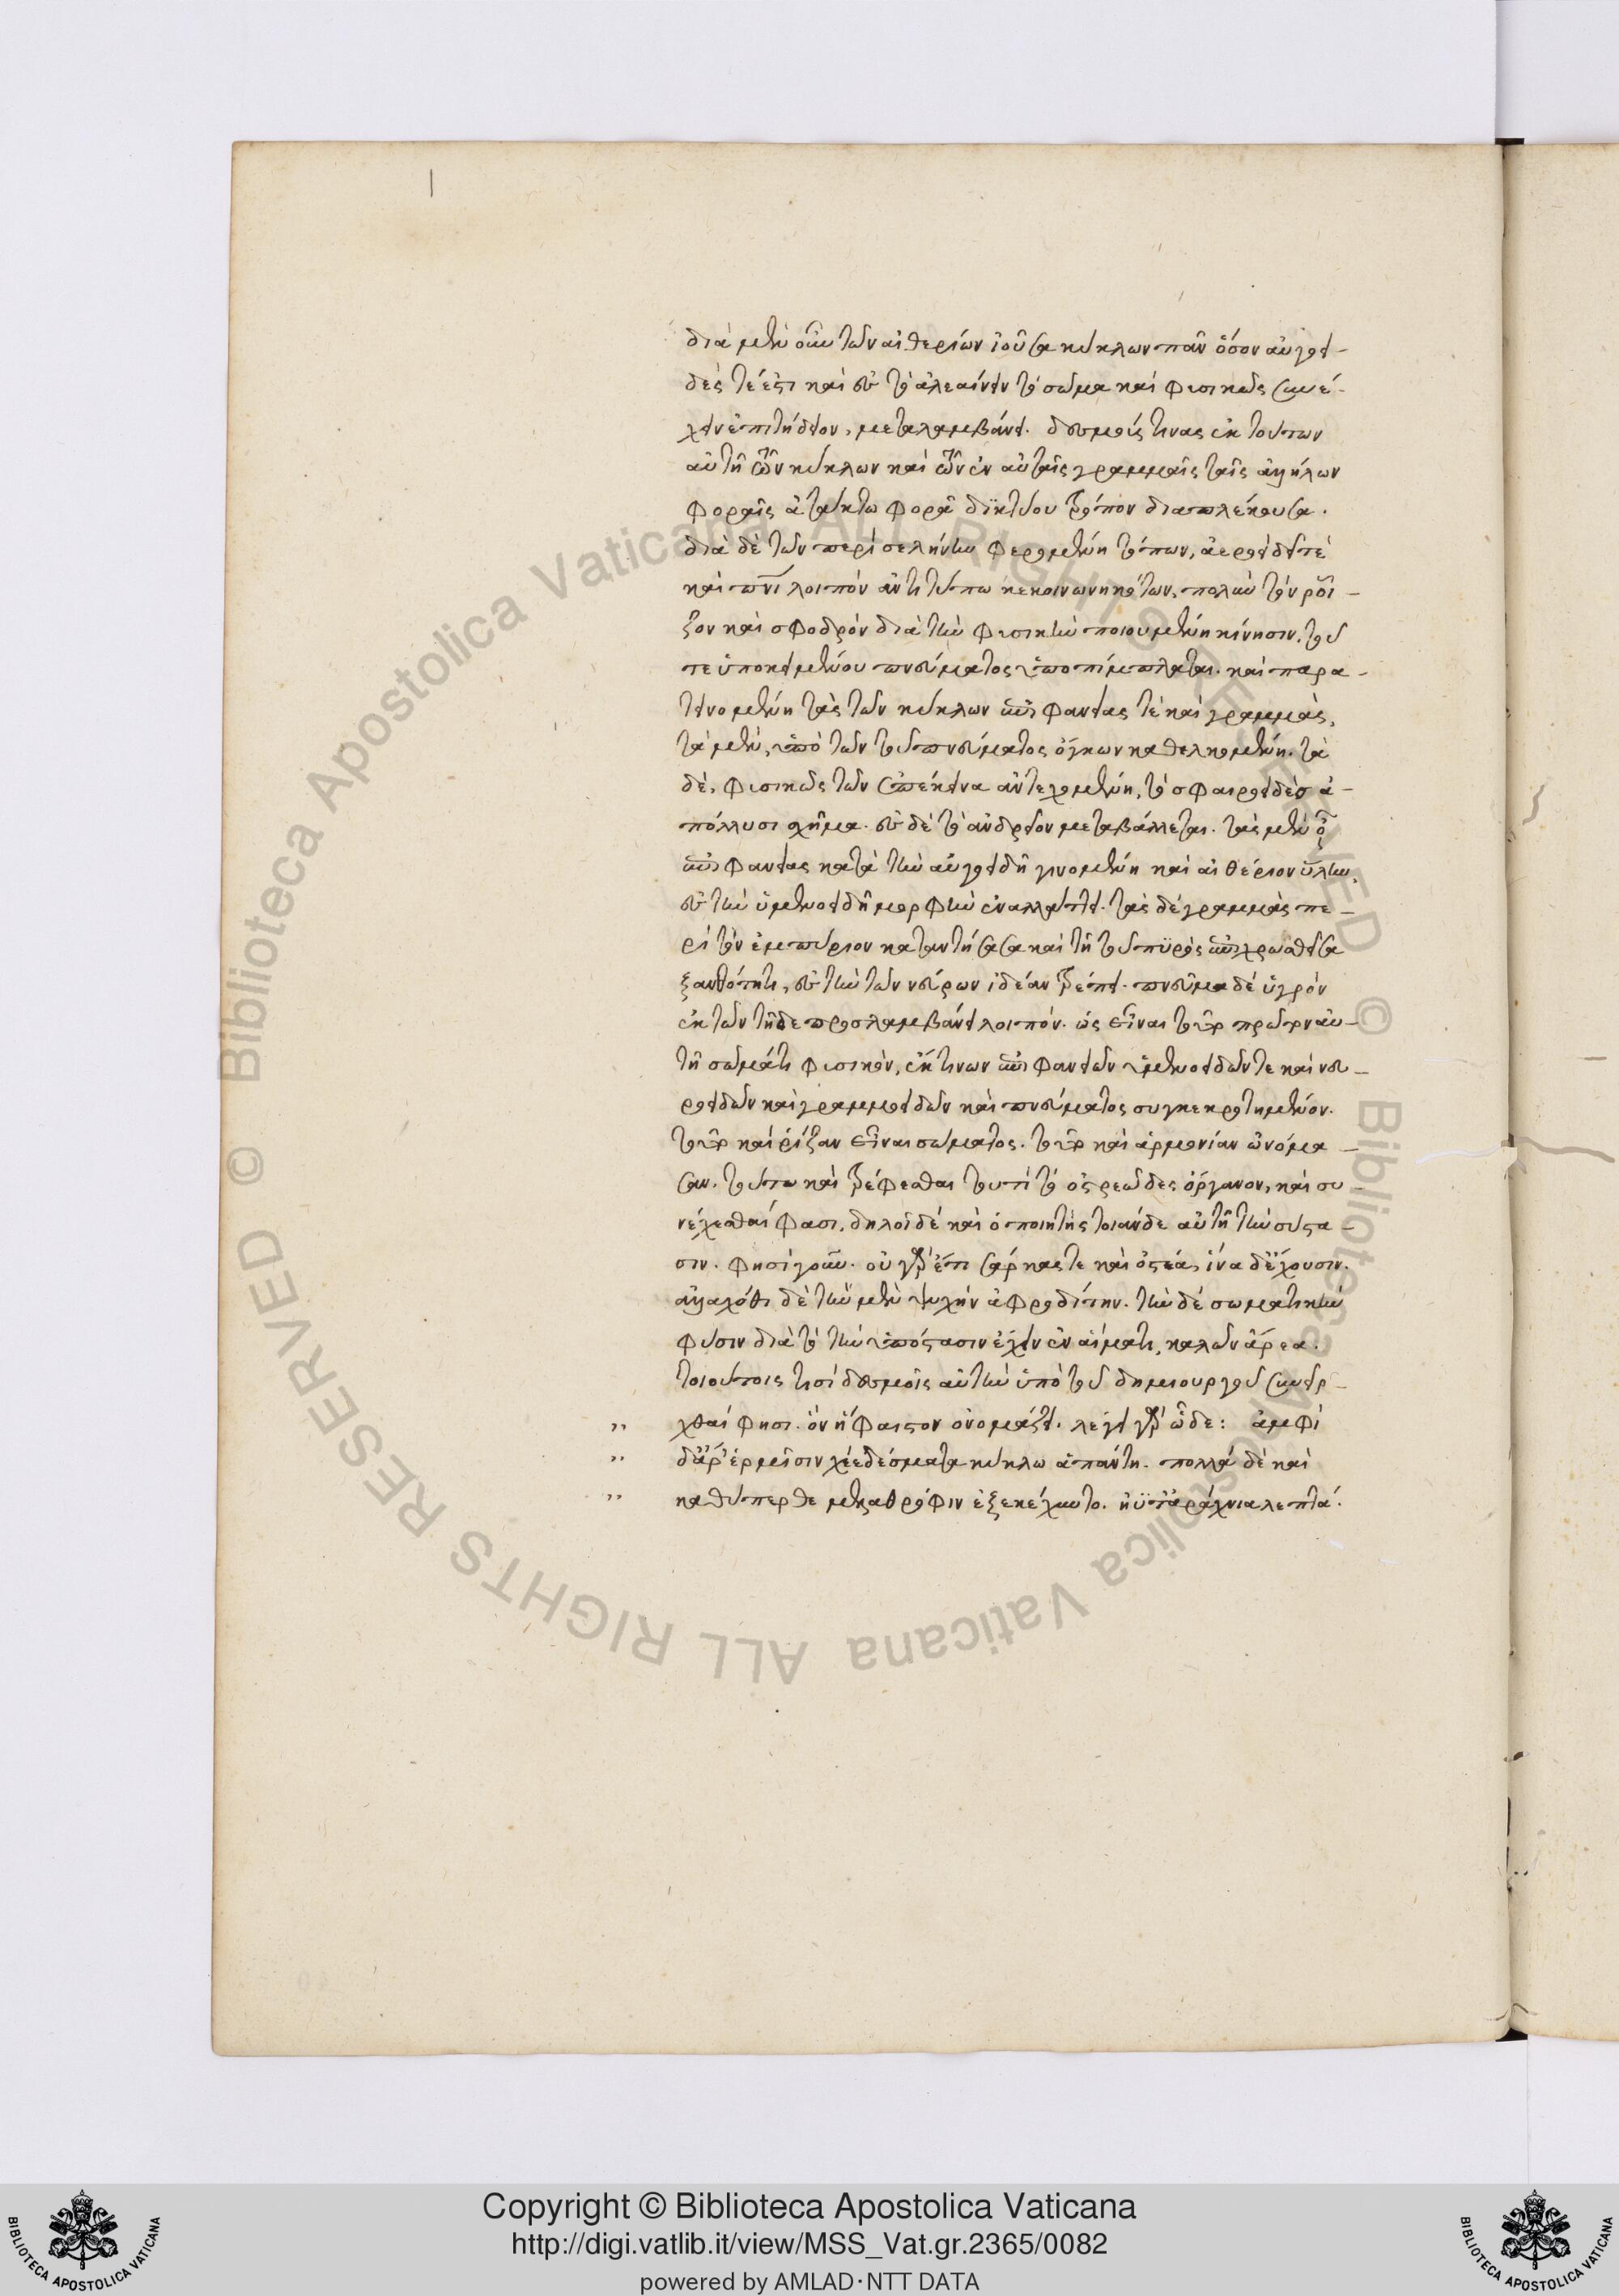 διὰ μὲν οὖν τῶν αἰθερίων ἰοῦσα κύκλων πᾶν ὅσον αὐγοει-
δές τέ ἐστι καὶ εἰς τὸ ἀλεαίνειν τὸ σῶμα καὶ φυσικῶς συνέ-
χειν ἐπιτήδειον, μεταλαμβάνει. δεσμούς τινας ἐκ τούτων
αὐτῇ τῶν κύκλων καὶ τῶν ἐν αὐταῖς γραμμαῖς ταῖς ἀλλήλων
φοραῖς ἀτάκτω φορᾷ δϊκτύου τρόπον διαπλέκουσα.
διὰ δὲ τῶν περὶ σελήνην φερομένη τόπων, ἀεροειδεῖ τε
καὶ πνι λοιπὸν ἀντιτύπω κεκοινωνηκότων, πολὺν τὸν ροῖ-
ζον καὶ σφοδρὸν διὰ τὴν φυσικὴν ποιουμένη κίνησιν, τοῦ
τε ὑποκειμένου πνεύματος ὑποπίμπλαται. καὶ παρα-
τεινομένη τὰς τῶν κύκλων ἐπιφανείας τε καὶ γραμμάς,
τὰ μὲν, ὑπὸ τῶν τοῦ πνεύματος ὄγκων καθελκομένη. τὰ
δὲ, φυσικῶς τῶν ἐπέκεινα ἀντεχομένη, τὸ σφαιροειδὲς ἀ-
πόλλυσι σχῆμα. εἰς δὲ τὸ ἀνδρεῖον μεταβάλλεται. τὰς μὲν
ἐπιφανείας κατὰ τὴν αὐγοειδῆ γινομένη καὶ αἰθέριον ὕλην,
εἰς τὴν ὑμενοειδῆ μορφὴν ἐναλλάττει. τὰς δὲ γραμμὰς πε-
ρὶ τὸν ἐμπύριον κατατήσασα καὶ τῇ τοῦ πυρὸς ἐπιχρωσθεῖσα
ξανθότητι, εἰς τὴν τῶν νεύρων ἰδέαν τρέπει. πνεῦμα δὲ ὑγρὸν
ἐκ τῶν τῇδε προσλαμβάνει λοιπόν. ὡς εἶναι τοῦτο πρῶτον αὐ-
τῇ σῶμά τι φυσικόν, ἔκ τινων ἐπιφανειῶν ὑμενοειδῶν τε καὶ νευ-
ροειδῶν καὶ γραμμοειδῶν καὶ πνεύματος συγκεκροτημένον.
τοῦτο καὶ ῥίζαν εἶναι σώματος. τοῦτο καὶ ἁρμονίαν ὠνόμα-
σαν. τούτω καὶ τρέφεσθαι τουτὶ τὸ ὀστρεῶδες ὄργανον, καὶ συ-
νέχεσθαί φασι. δηλοῖ δὲ καὶ ὁ ποιητὴς τοιάνδε αὐτῇ τὴν σύστα-
σιν. φησὶ γοῦν. οὐ γὰρ ἔτι σάρκας τε καὶ ὀστέα, ἵνα δ᾽ ἔχουσιν.
ἀλλαχόθι δὲ τὴν μὲν ψυχὴν ἀφροδίτην. τὴν δὲ σωματικὴν
φύσιν διὰ τὸ τὴν ὑπόστασιν ἔχειν ἐν αἵματι, καλῶν ἄρεα.
τοιούτοις τισὶ δεσμοῖς αὐτὴν ὑπὸ τοῦ δημιουργοῦ συνεῖρ-
,, χθαί φησι. ὃν ἥφαιστον ὀνομάζει. λέγει γὰρ ὧδε: ἀμφὶ
,, δ᾽ ἄρ᾽ ἑρμῖσιν χέε δέσματα κύκλω ἁπάντη. πολλὰ δὲ καὶ
,, καθύπερθε μελαθρόφιν ἐξεκέχυντο. ἠΰτ᾽ ἀράχνια λεπτά.
Copyright © Biblioteca Apostolica Vaticana
http://digi.vatlib.it/view/MSS_Vat.gr.2365/0082
powered by AMLAD·NTT DATA